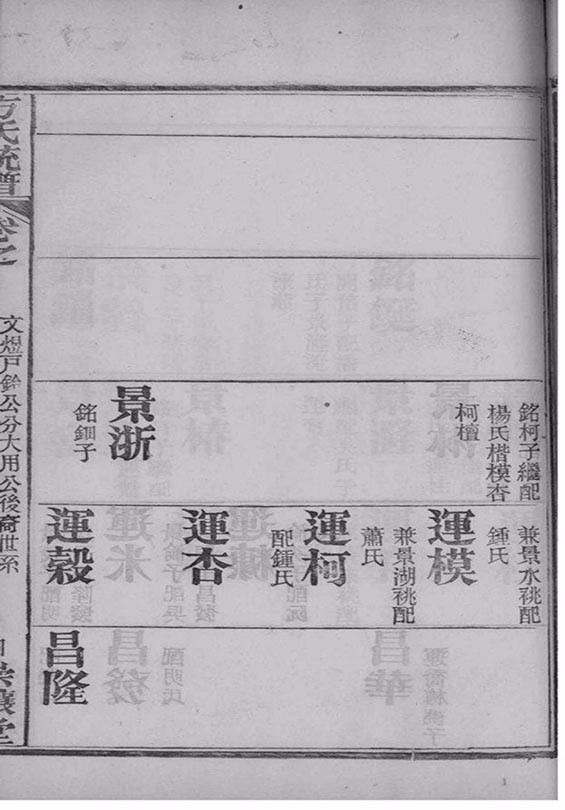 銘柯子繼配
楊氏楷模杏
柯檀
景浙
銘鈿子
兼景水祧配
鍾氏
運模
兼景湖祧配
蕭氏
運柯
配鍾氏
運杏
運穀
昌隆
方氏統譜
卷之
文焜戶鈴公分大用公後裔世系